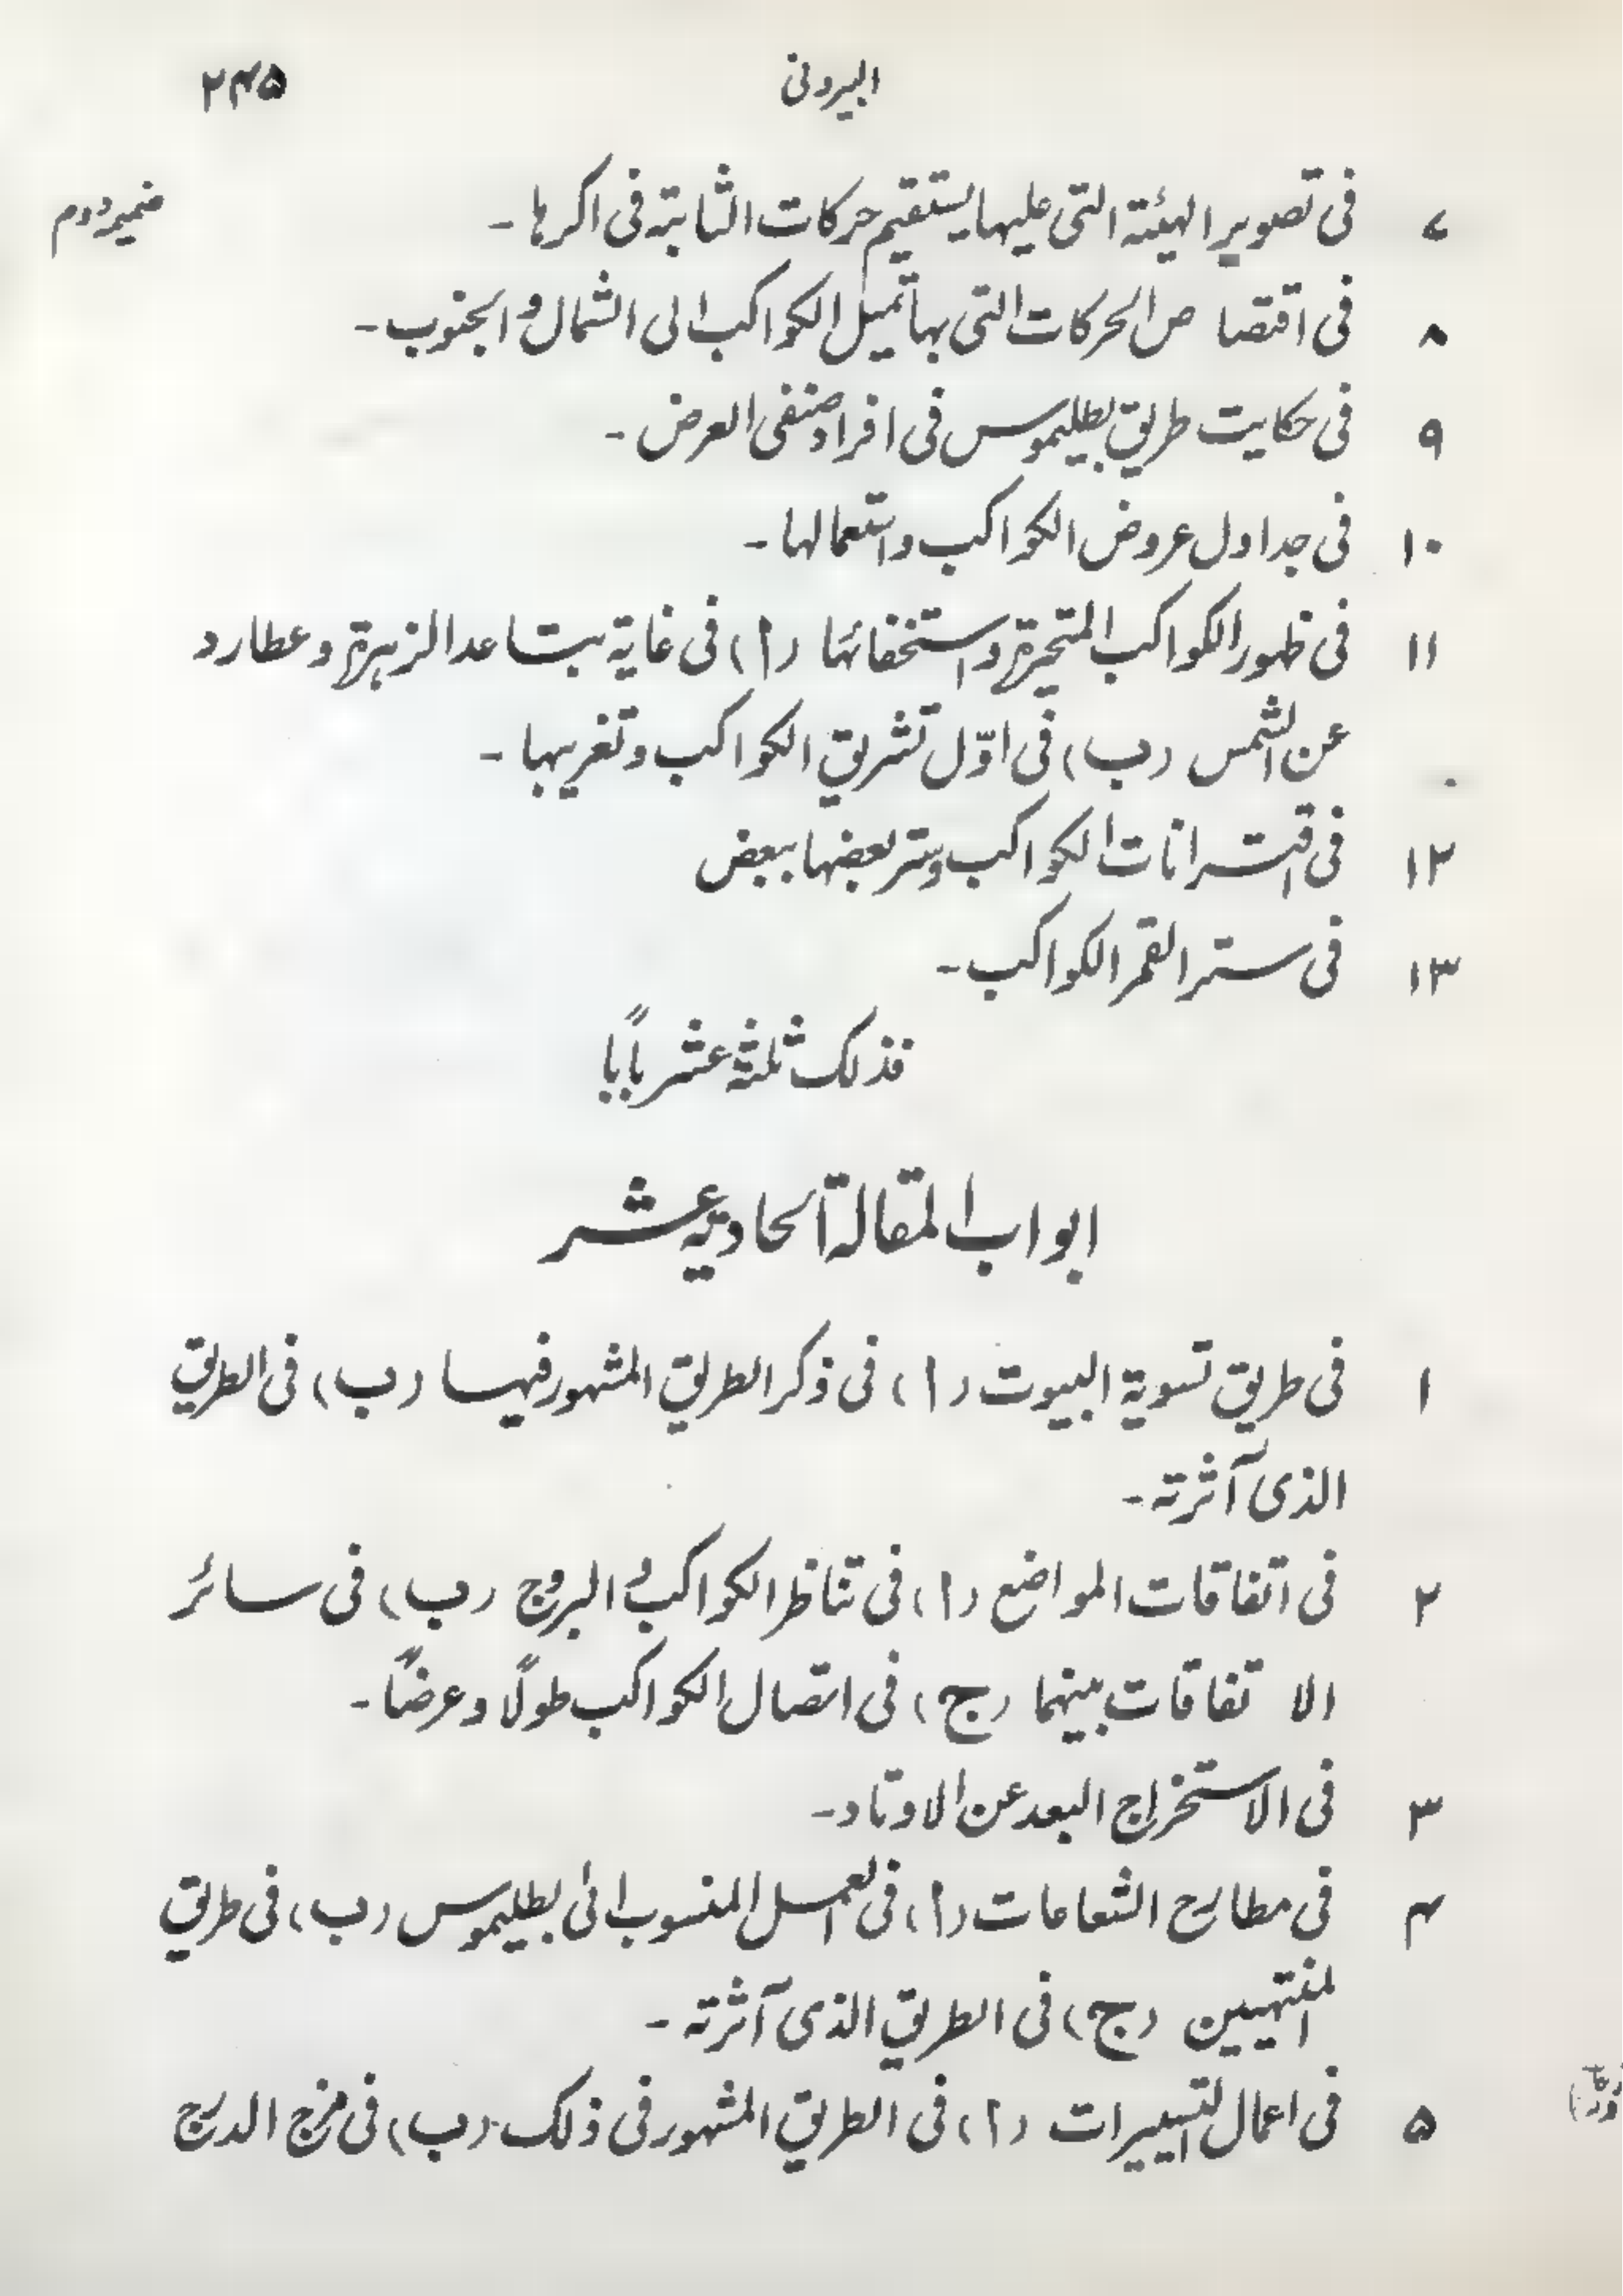 البیرونی ۲۴۵
ضمیمہ دوم
۷ فی تصویر الہیئۃ التی علیہا یستقیم حرکات الثابتۃ فی اکرہا ۔
۸ فی اقتصاص الحرکات التی بہا تمیل الکواکب الی الشمال و الجنوب ۔
۹ فی حکایت طریق بطلیموس فی افراد صنفی العرض ۔
۱۰ فی جداول عروض الکواکب واستعمالہا ۔
۱۱ فی ظہور الکواکب المتحیرۃ واستخفائہا (ا) فی غایۃ تباعد الزہرۃ و عطارد
عن الشمس (ب) فی اوّل تشریق الکواکب و تغریبہا ۔
۱۲ فی اقترانات الکواکب وستر بعضہا ببعض
۱۳ فی ستر القمر الکواکب ۔
فذلک ثلثۃ عشر باباً
ابواب المقالۃ الحادیۃ عشر
۱ فی طریق تسویۃ البیوت (ا) فی ذکر الطریق المشہور فیہا (ب) فی الطریق
الذی آثرتہ ۔
۲ فی اتفاقات المواضع (ا) فی تناظر الکواکب و البروج (ب) فی سائر
الا تفاقات بینہما (ج) فی اتصال الکواکب طولًا و عرضًا ۔
۳ فی الاستخراج البعد عن الاوتاد ۔
۴ فی مطارح الشعاعات (ا) فی العمل المنسوب الیٰ بطلیموس (ب) فی طریق
المنتہیین (ج) فی الطریق الذی آثرتہ ۔
۵ فی اعمال التسییرات (ا) فی الطریق المشہور فی ذلک (ب) فی مزج الدرج